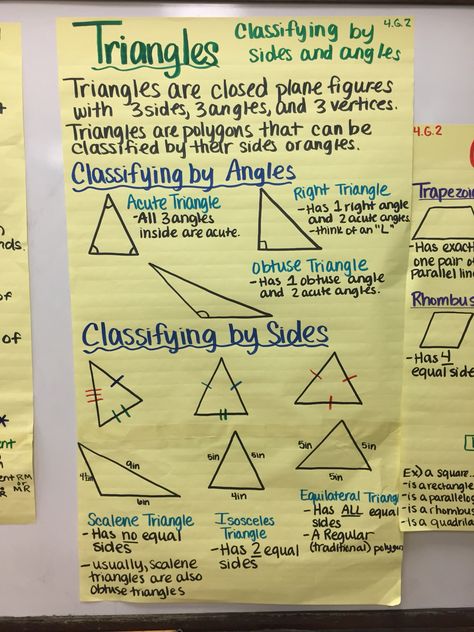 Triangles
Classifying by
sides and angles
4.G.2
Triangles are closed plane figures
with 3 sides, 3 angles, and 3 vertices.
Triangles are polygons that can be
classified by their sides or angles.
Classifying by Angles
Acute Triangle
- All 3 angles
inside are acute.
Right Triangle
- Has 1 right angle
and 2 acute angles
- think of an "L"
Obtuse Triangle
- Has 1 obtuse angle
and 2 acute angles.
Classifying by Sides
9in
6in
5in
5in
4in
5in
5in
5in
Scalene Triangle
- Has no equal
sides
- usually, scalene
triangles are also
obtuse triangles
Isosceles
Triangle
- Has 2 equal
sides
Equilateral Triang
- Has ALL equal
sides
- A Regular
(traditional) polygon
4.G.2
Trapezoi
- Has exact
one pair of
parallel line
Rhombus
- Has 4
equal side
Ex) a square...
- is a rectangle
- is a parallelog
- is a rhombus
- is a quadrila
of
of